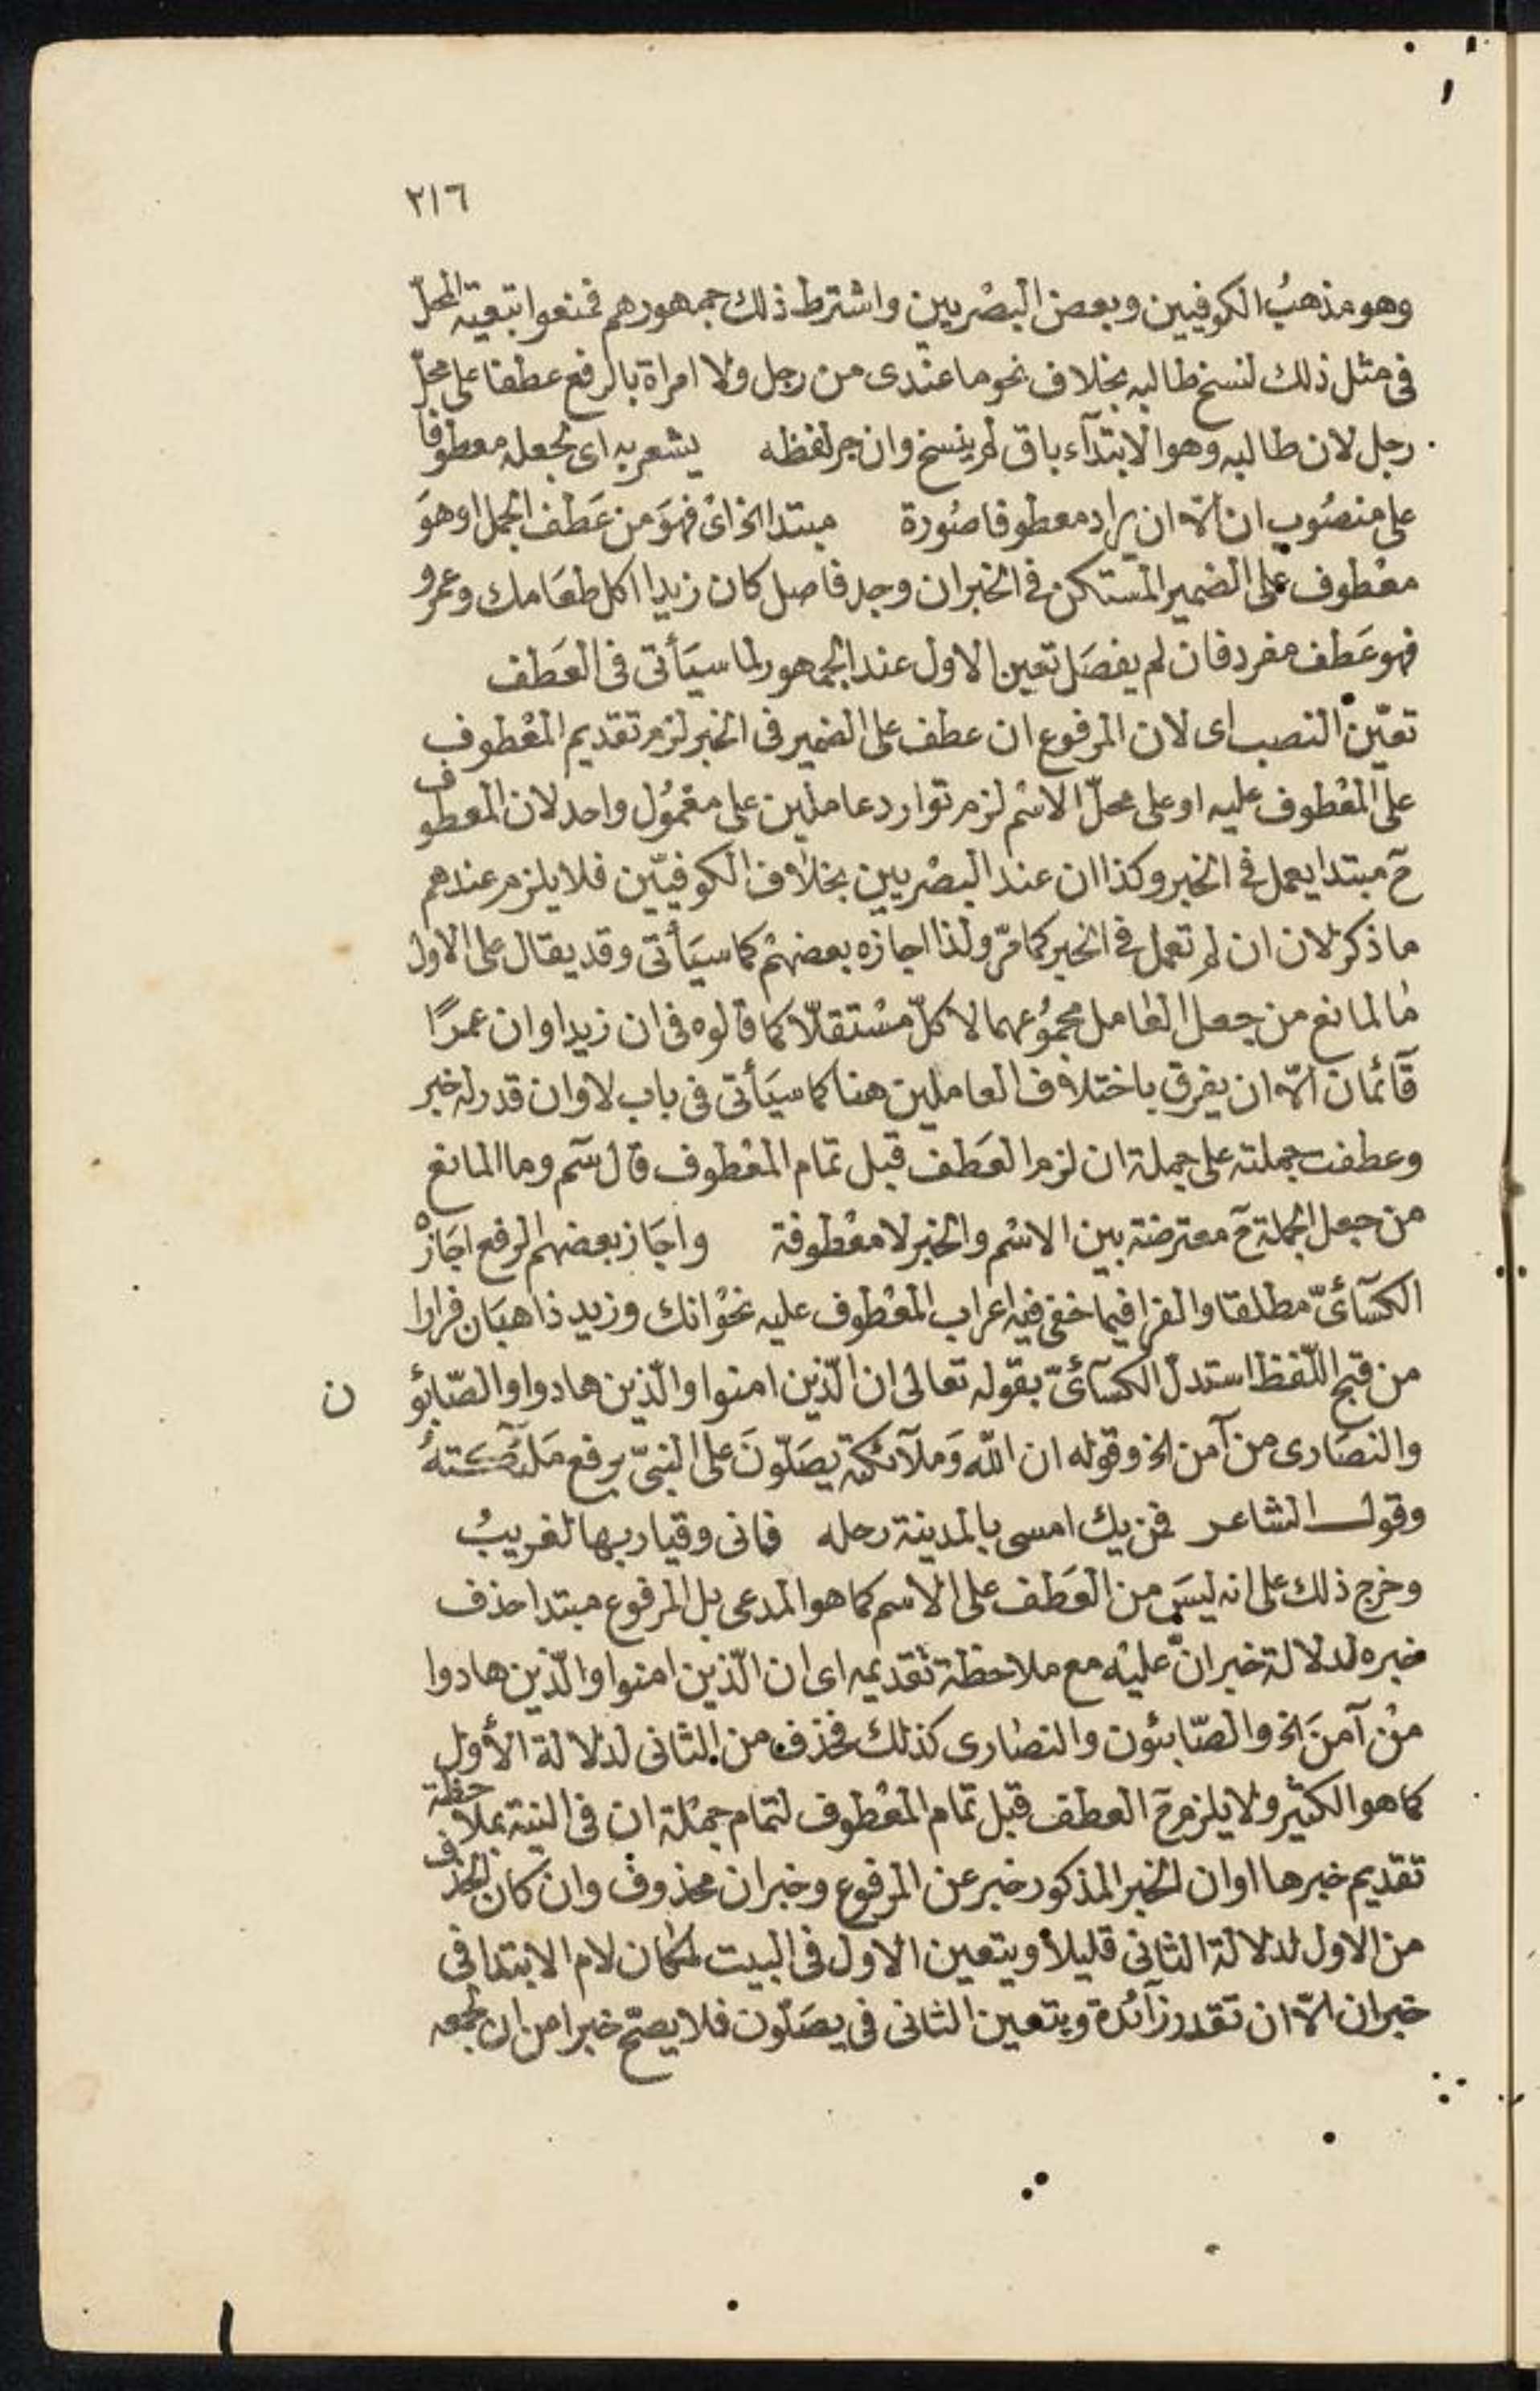 ٢١٦
وهو مذهبُ الكوفيين وبعض البصْريين واشترط ذلك جمهورهم فمنعوا بتعية المحلّ
فى مثل ذلك لنسخ طالبه بخلاف نحو ما عندى من رجل ولا امراة بالرفع عطفا على محلّ
رجل لان طالبه وهو الابتدآء باق لم ينسخ وان جر لفظه يشعر به اى بجعله معطوفا
على منصُوب ان الاّ ان يراد معطوفا صُورة مبتدا الخ اىْ فهوَ من عَطف الجمل او هوَ
معْطوف على الضمير المسْتكن فى الخبر ان وجد فاصل كان زيدا اكل طعَامك وعمرو
فهو عَطف مفرد فان لم يفصَل تعين الاول عند الجمهور لما سيَأتى فى العَطف
تعيّن النصب اى لان المرفوع ان عطف على الضمير فى الخبر لزم تقديم المعْطوف
على المعْطوف عليه او على محلّ الاسْم لزم توارد عاملين على معْمُول واحد لان المعطوف
حٓ مبتدا يعمل فى الخبر وكذا ان عند البصْريين بخلاف الكوفيّين فلا يلزم عندهم
ما ذكر لان ان لم تعمل فى الخبر كما مرّ ولذا اجازه بعضهمْ كما سيَأتى وقد يقال على الاول
ما المانع من جعل العامل مجموُعهما لا كلّ مسْتقلّا كما قالوه فى ان زيدا وان عمرًا
قآئمان الاّ ان يفرق باختلاف العاملين هنا كما سيَأتى فى باب لا وان قدر له خبر
وعطفت جملته على جملة ان لزم العَطف قبل تمام المعْطوف قال سٓم وما المانع
من جعل الجملة حٓ معترضة بين الاسْم والخبر لا معْطوفة واجَاز بعضهم الرفع اجَازهْ
الكسَآئىّ مطلقا والفرا فيما خفى فيه اعراب المعْطوف عليه نحوْ انك وزيد ذاهبَان فرارا
من قبح اللّفظ استدلّ الكسَآئىّ بقوله تعالى ان الّذين امنوا والّذين هادوا والصّابؤن
والنصَارى من آمن الخ وقوله ان الله وَملآئكته يصَلّونَ على النبىّ برفع مَلئٓكتهُ
وقول الشاعر فمن يك امسى بالمدينة رحله فانى وقيار بها لغريبُ
وخرج ذلك على انه ليسَ من العَطف على الاسم كما هو المدعى بل المرفوع مبتدا حذف
خبره لدلالة خبر انّ عليْه مع ملاحظة تقديمه اى ان الّذين امنوا والّذين هادوا
منْ آمنَ الخ والصّابئون والنصارى كذلك فحذف من الثانى لدلالة الأول
كما هو الكثير ولا يلزم حٓ العطف قبل تمام المعْطوف لتمام جمْلة ان فى النية بملاحظة
تقديم خبرها او ان الخبر المذكور خبر عن المرفوع وخبر ان محذوف وان كان الحذف
من الاول لدلالة الثانى قليلا ويتعين الاول فى البيت لمكان لام الابتدا فى
خبر ان الاّ ان تقدر زآئدة ويتعين الثانى فى يصَلّون فلا يصحّ خبرا من ان لجمعه